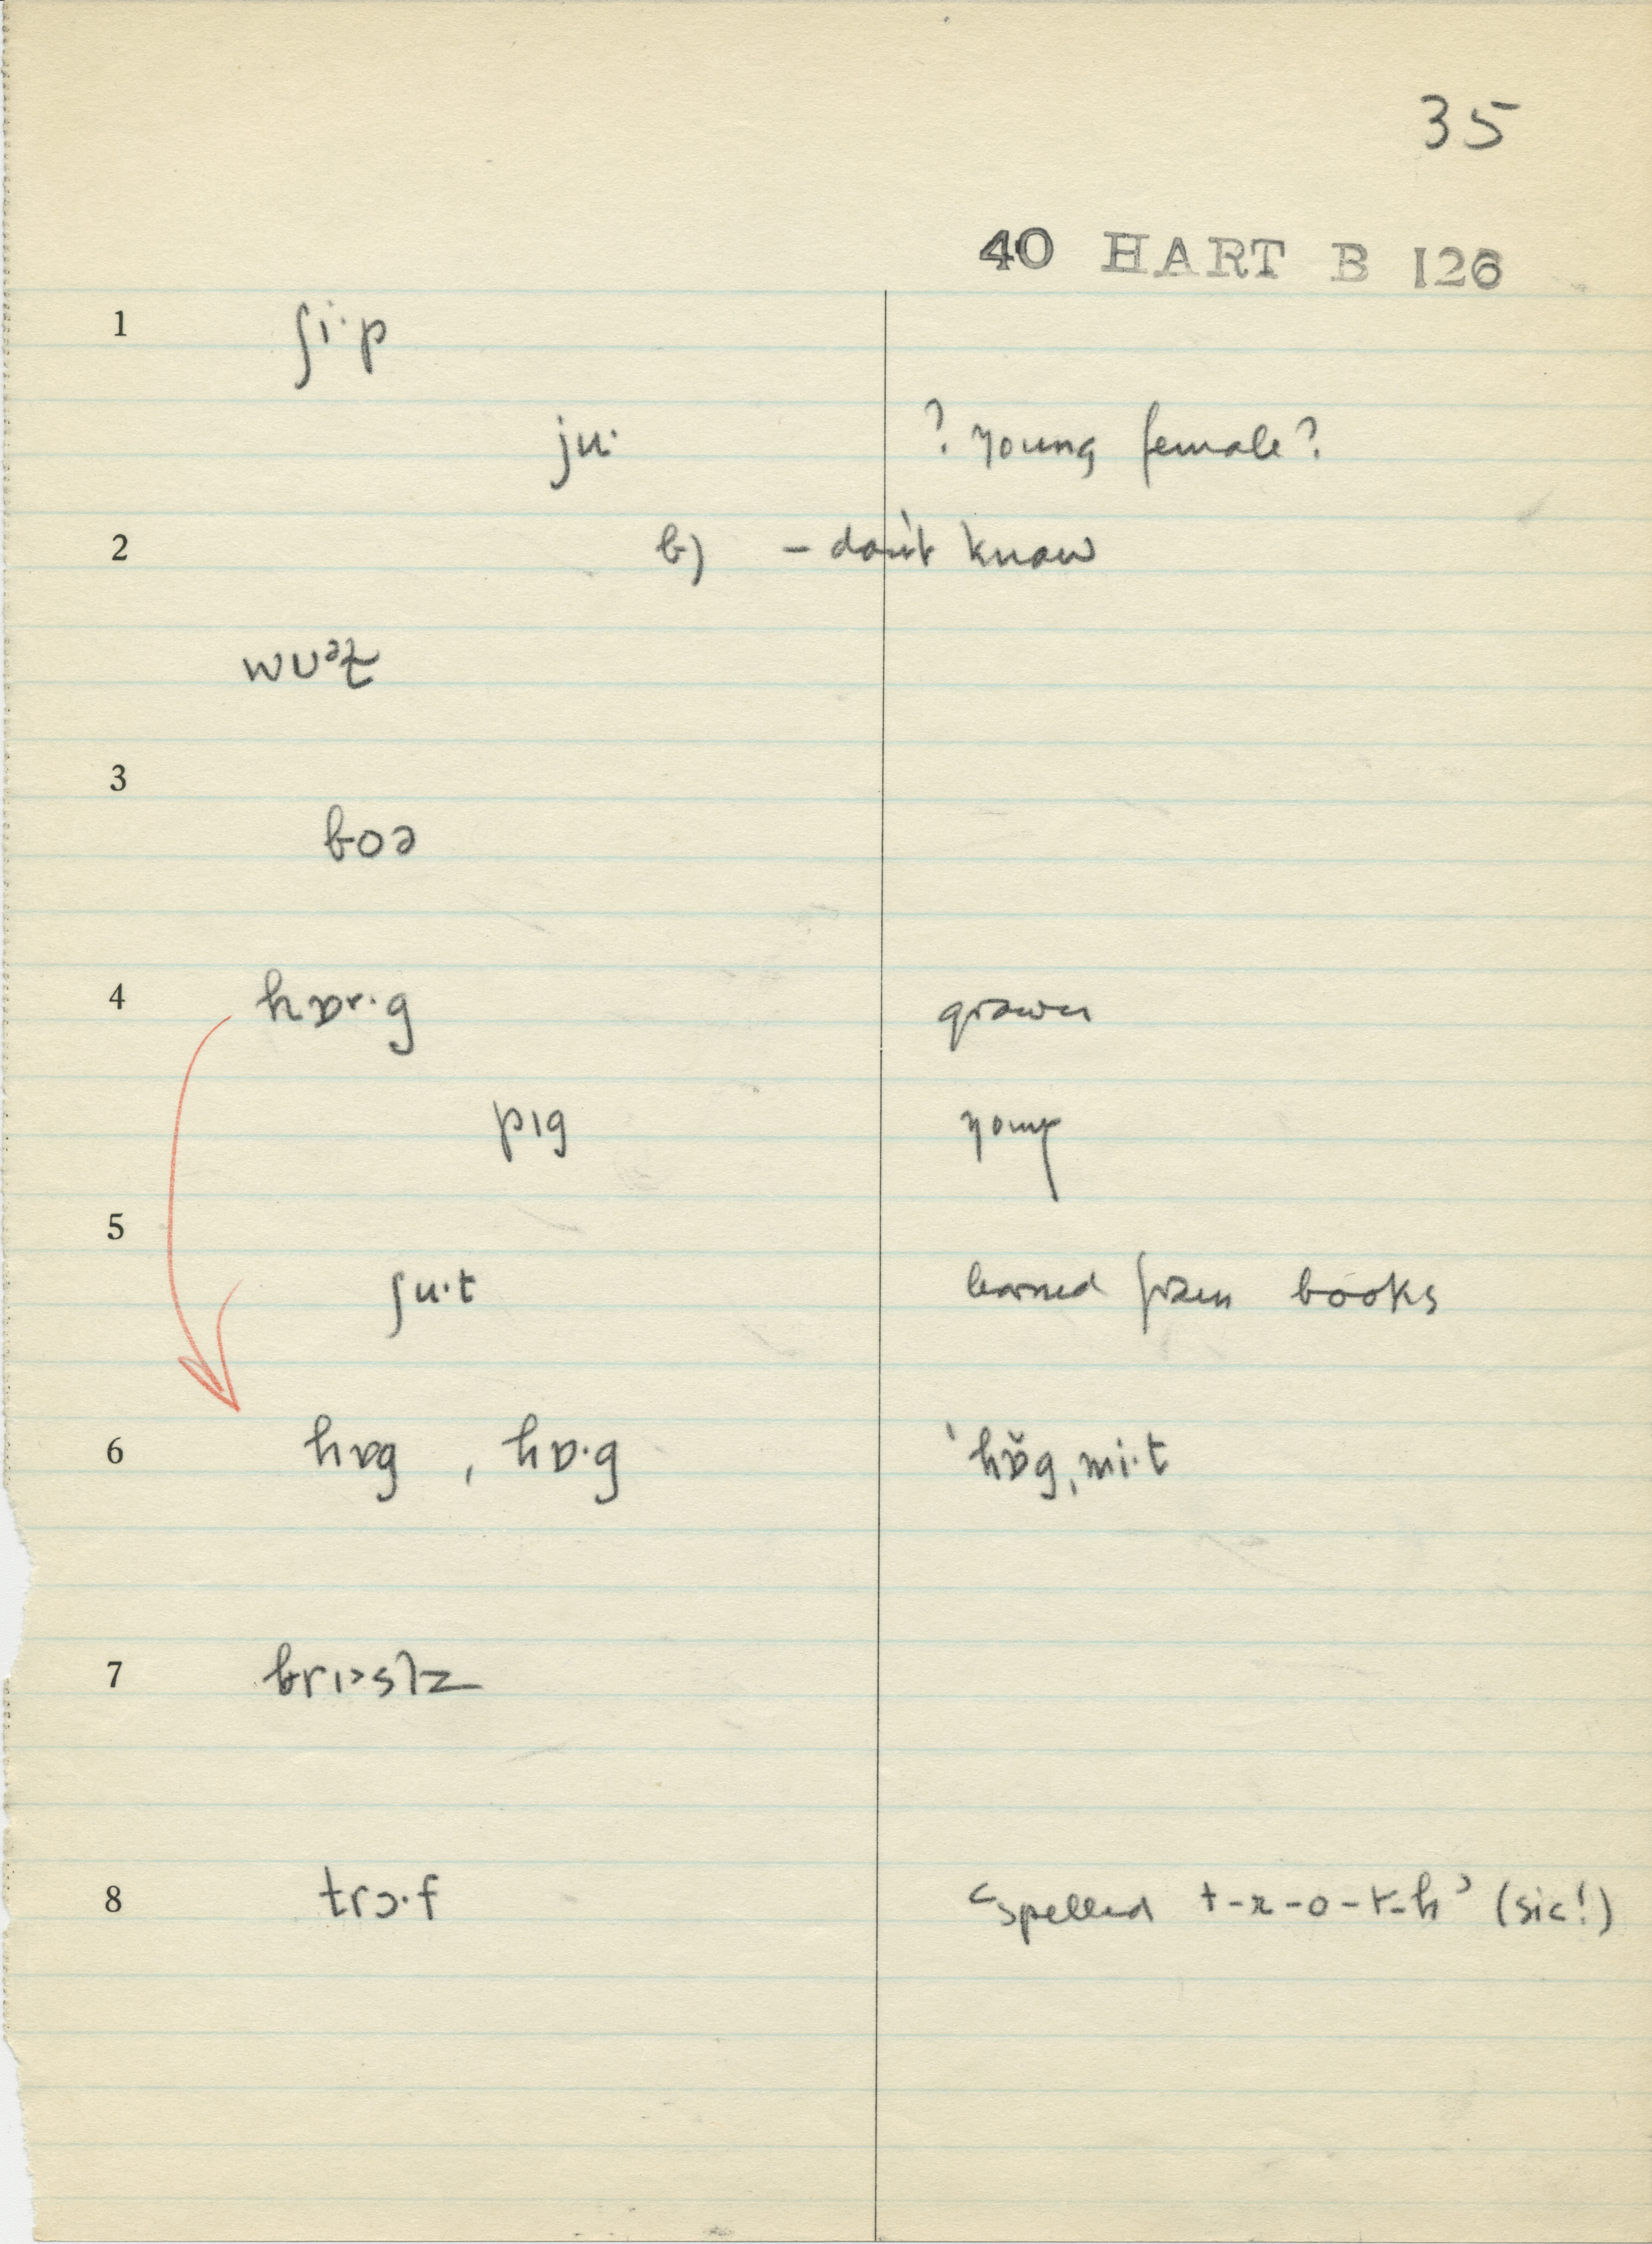 35
40 HART B 126
1 ʃi·p
ju· ? young female?
2 b) – don't know
wuᵊɫ
3
boə
4 hɒr·g grown
pɪg young
5
ʃu·t learned from books
6 hɒg , hɒ·g 'hɒ̆g,mi·t
7 brɪəslz
8 trɔ·f 'spelled t-r-o-t-h' (sic!)